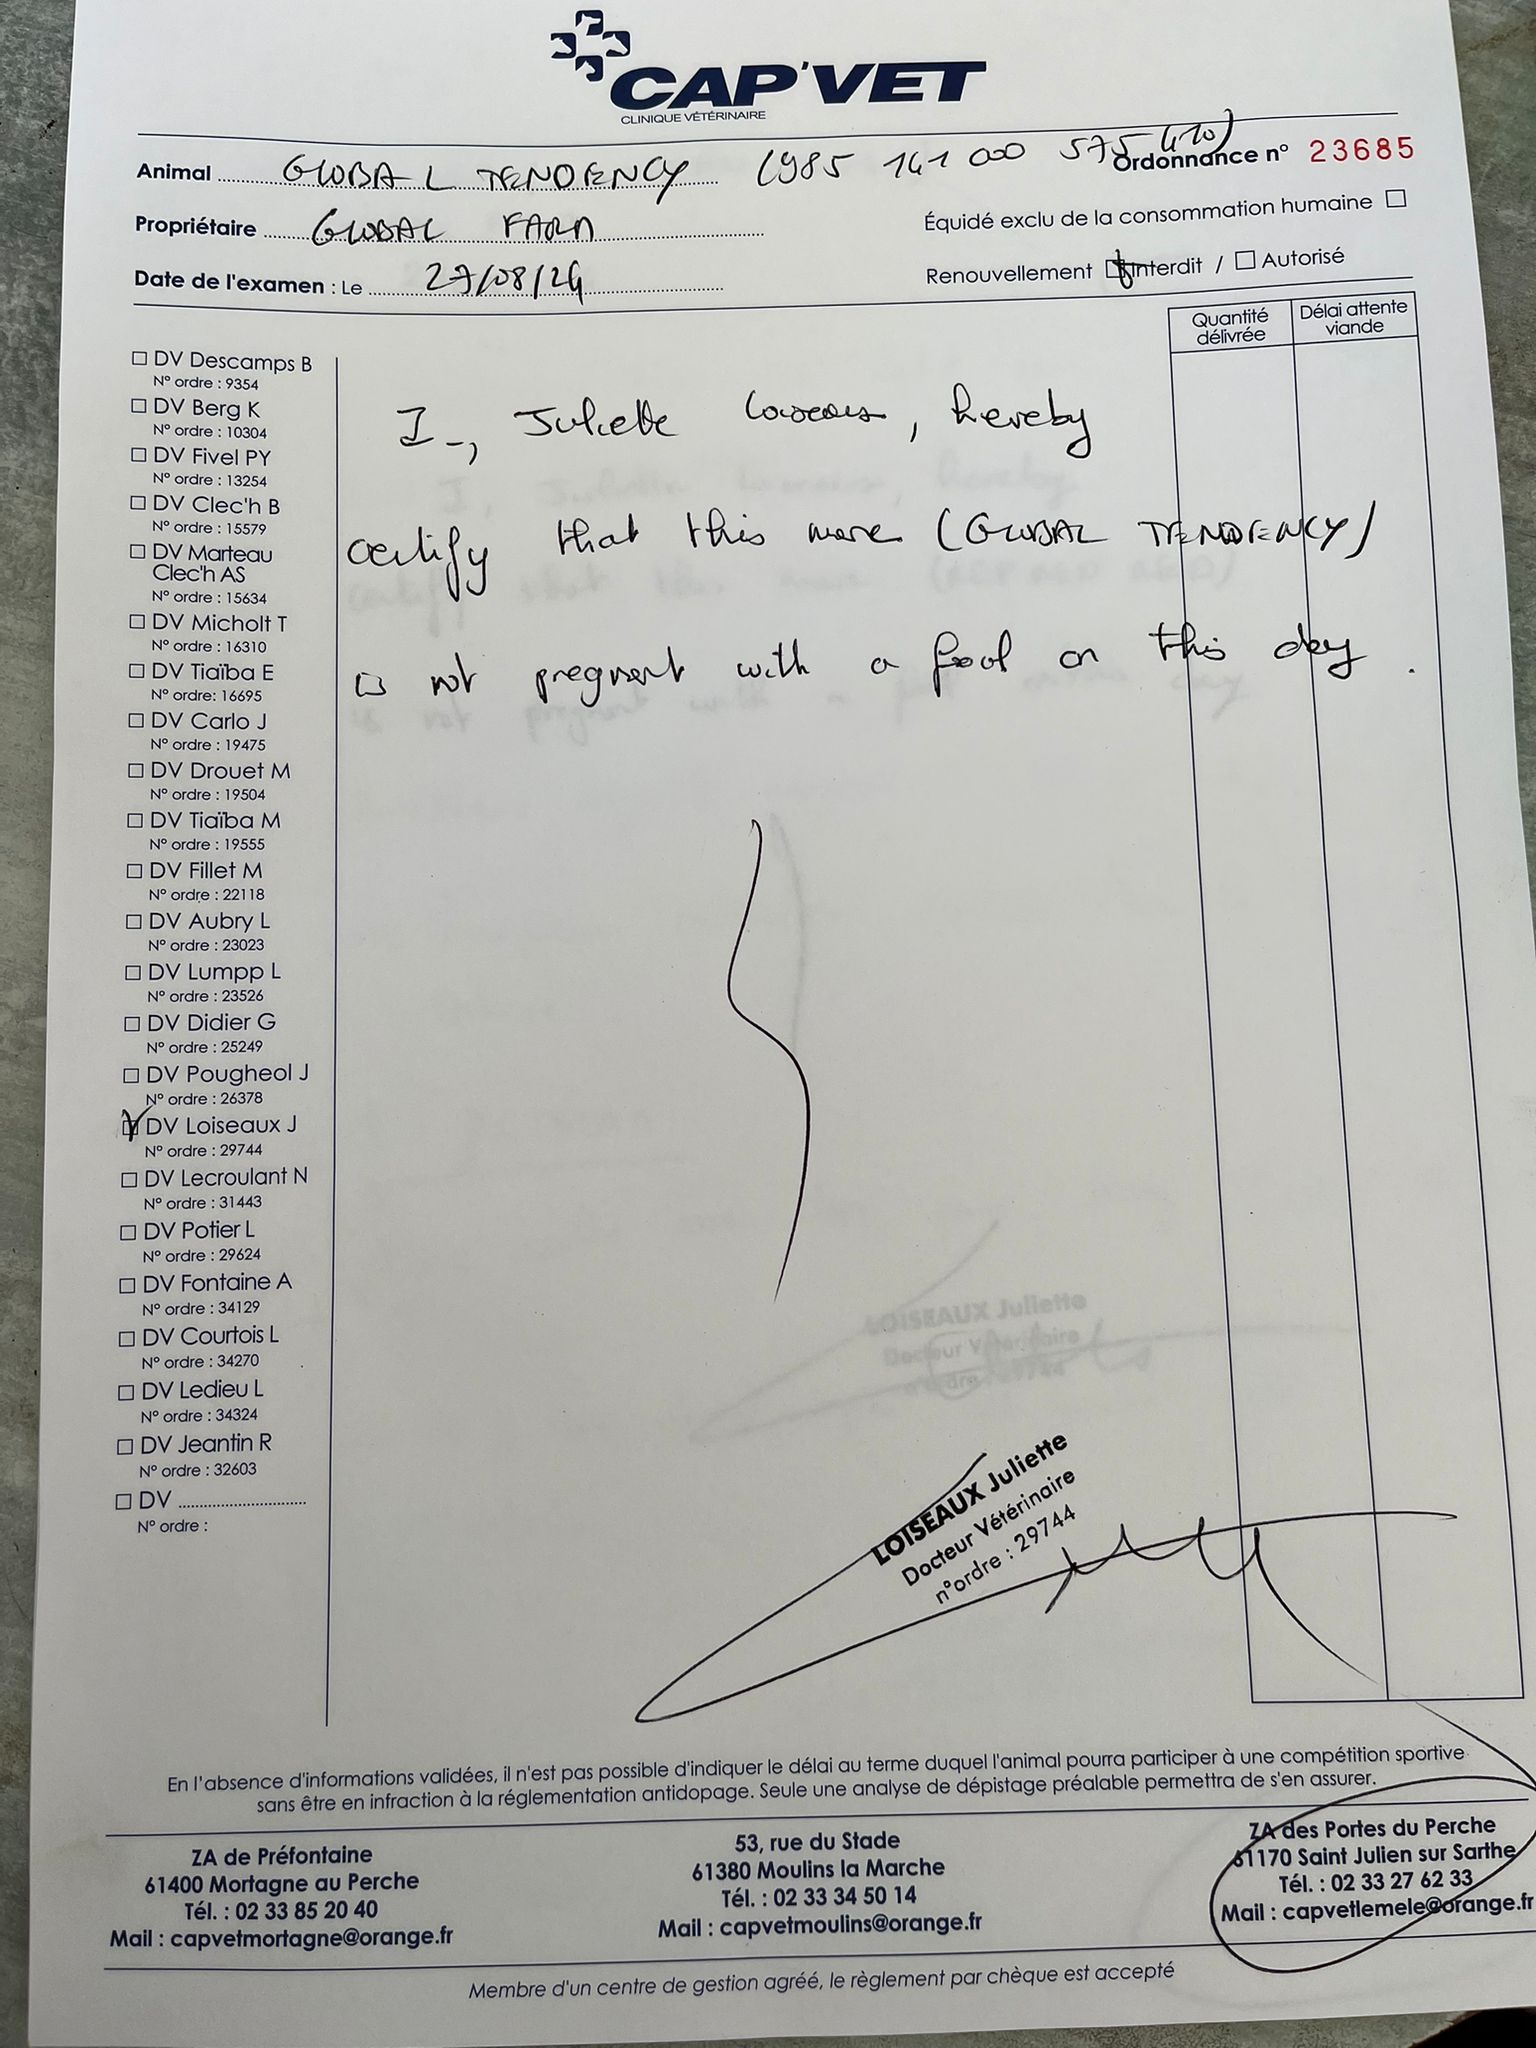 CAP'VET
CLINIQUE VÉTÉRINAIRE
Animal GLOBAL TENDENCY (985 141 000 575 410)
Ordonnance n° 23685
Propriétaire GLOBAL FARM
Équidé exclu de la consommation humaine
Date de l'examen : Le 27/08/24
Renouvellement Interdit / Autorisé
Quantité délivrée
Délai attente viande
DV Descamps B
N° ordre : 9354
DV Berg K
N° ordre : 10304
DV Fivel PY
N° ordre : 13254
DV Clec'h B
N° ordre : 15579
DV Marteau
Clec'h AS
N° ordre : 15634
DV Micholt T
N° ordre : 16310
DV Tiaïba E
N° ordre: 16695
DV Carlo J
N° ordre : 19475
DV Drouet M
N° ordre : 19504
DV Tiaïba M
N° ordre : 19555
DV Fillet M
N° ordre : 22118
DV Aubry L
N° ordre : 23023
DV Lumpp L
N° ordre : 23526
DV Didier G
N° ordre : 25249
DV Pougheol J
N° ordre : 26378
DV Loiseaux J
N° ordre : 29744
DV Lecroulant N
N° ordre : 31443
DV Potier L
N° ordre : 29624
DV Fontaine A
N° ordre : 34129
DV Courtois L
N° ordre : 34270
DV Ledieu L
N° ordre : 34324
DV Jeantin R
N° ordre : 32603
DV
N° ordre :
I, Juliette Loiseaux, hereby
certify that this mare (GLOBAL TENDENCY)
is not pregnant with a foal on this day.
LOISEAUX Juliette
Docteur Vétérinaire
n°ordre : 29744
En l'absence d'informations validées, il n'est pas possible d'indiquer le délai au terme duquel l'animal pourra participer à une compétition sportive
sans être en infraction à la réglementation antidopage. Seule une analyse de dépistage préalable permettra de s'en assurer.
ZA de Préfontaine
61400 Mortagne au Perche
Tél. : 02 33 85 20 40
Mail : capvetmortagne@orange.fr
53, rue du Stade
61380 Moulins la Marche
Tél. : 02 33 34 50 14
Mail : capvetmoulins@orange.fr
ZA des Portes du Perche
61170 Saint Julien sur Sarthe
Tél. : 02 33 27 62 33
Mail : capvetlemele@orange.fr
Membre d'un centre de gestion agréé, le règlement par chèque est accepté